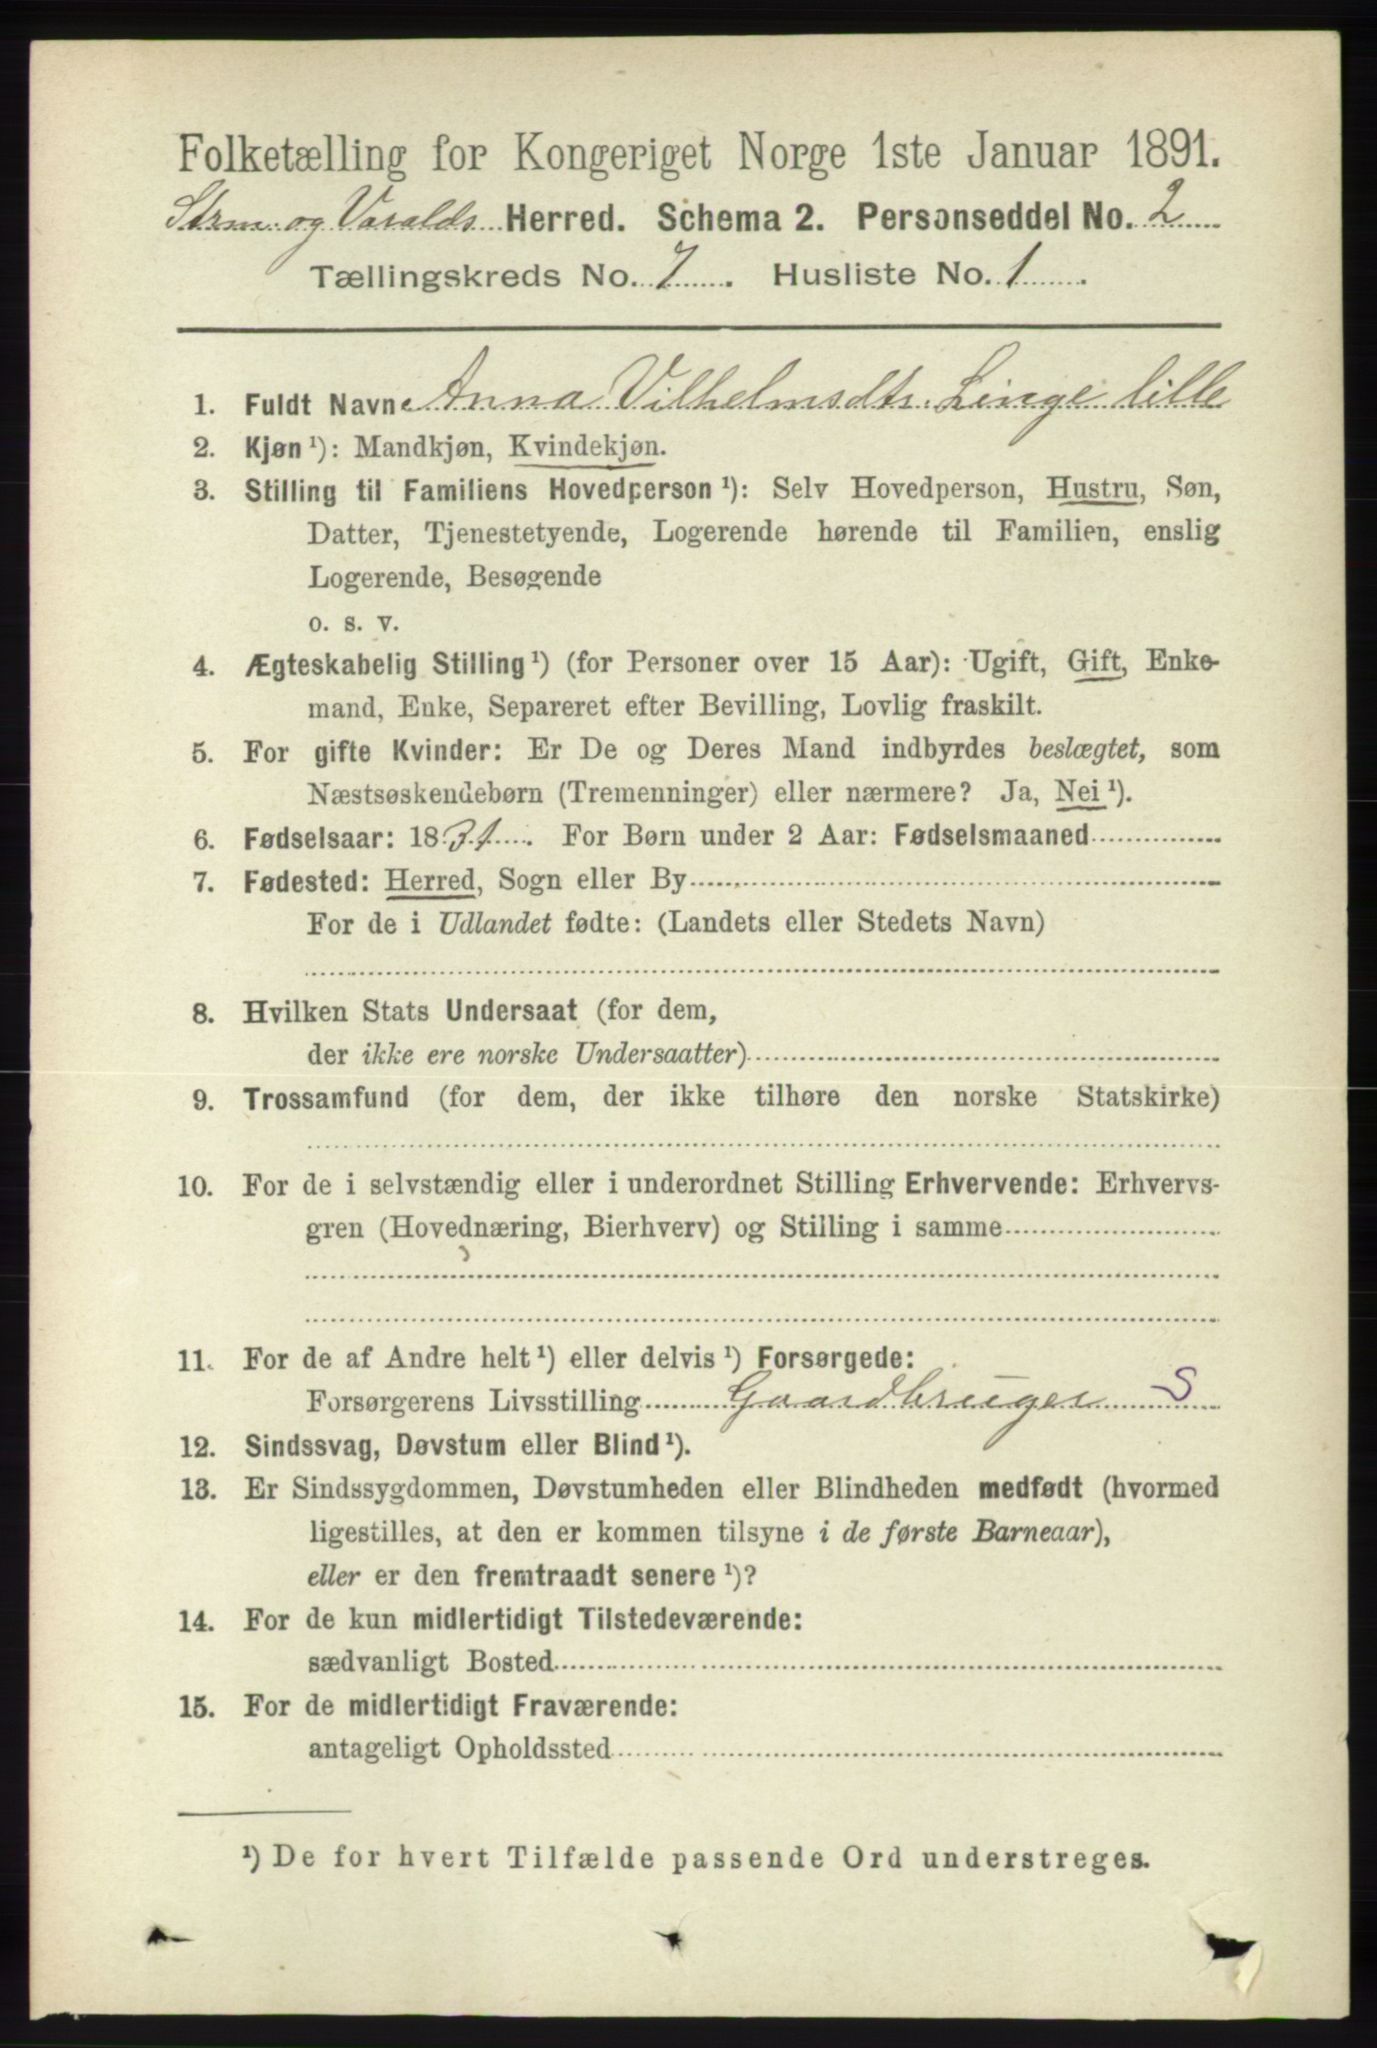 Folketælling for Kongeriget Norge 1ste Januar 1891.
Strm. og Varalds Herred. Schema 2. Personseddel No. 2
Tællingskreds No. 7. Husliste No. 1.
1. Fuldt Navn Anna Vilhelmsdtr. Linge lille
2. Kjøn ¹): Mandkjøn, Kvindekjøn.
3. Stilling til Familiens Hovedperson ¹): Selv Hovedperson, Hustru, Søn,
Datter, Tjenestetyende, Logerende hørende til Familien, enslig
Logerende, Besøgende
o. s. v.
4. Ægteskabelig Stilling ¹) (for Personer over 15 Aar): Ugift, Gift, Enke-
mand, Enke, Separeret efter Bevilling, Lovlig fraskilt.
5. For gifte Kvinder: Er De og Deres Mand indbyrdes beslægtet, som
Næstsøskendebørn (Tremenninger) eller nærmere? Ja, Nei ¹).
6. Fødselsaar: 1831. For Børn under 2 Aar: Fødselsmaaned
7. Fødested: Herred, Sogn eller By
For de i Udlandet fødte: (Landets eller Stedets Navn)
8. Hvilken Stats Undersaat (for dem,
der ikke ere norske Undersaatter)
9. Trossamfund (for dem, der ikke tilhøre den norske Statskirke)
10. For de i selvstændig eller i underordnet Stilling Erhvervende: Erhvervs-
gren (Hovednæring, Bierhverv) og Stilling i samme
11. For de af Andre helt ¹) eller delvis ¹) Forsørgede:
Forsørgerens Livsstilling Gaardbruger S
12. Sindssvag, Døvstum eller Blind ¹).
13. Er Sindssygdommen, Døvstumheden eller Blindheden medfødt (hvormed
ligestilles, at den er kommen tilsyne i de første Barneaar),
eller er den fremtraadt senere ¹)?
14. For de kun midlertidigt Tilstedeværende:
sædvanligt Bosted
15. For de midlertidigt Fraværende:
antageligt Opholdssted
¹) De for hvert Tilfælde passende Ord understreges.